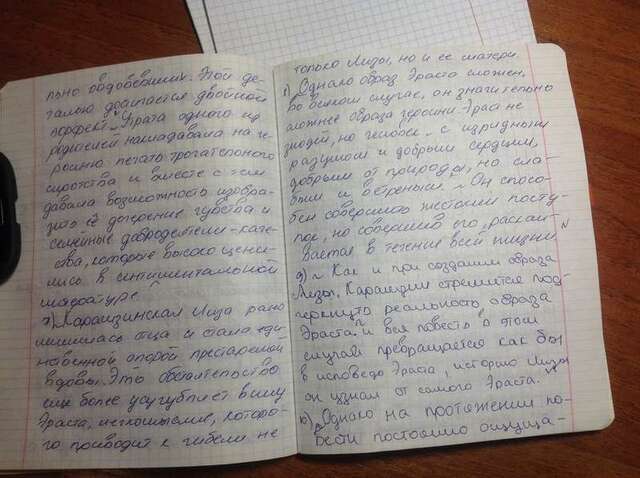 льно овдовевших. Этой де-
талью достигается двойной
эффект. „Утрата одного из
родителей накладывала на ге-
роиню печать трогательного
сиротства и вместе с тем
давала возможность изобра-
зить её дочерние чувства и
семейные добродетели - каче-
ства, которые высоко цени-
лись в сентиментальной
литературе"
7) Карамзинская Лиза рано
лишилась отца и стала един-
ственной опорой престарелой
вдовы. Это обстоятельство
еще более усугубляет вину
Эраста, легкомыслие, которо-
го приводит к гибели не
только Лизы, но и ее матери.
Однако образ Эраста сложен,
во всяком случае, он значительно
сложнее образа героини. Эраст не
злодей, но человек „с изрядным
разумом и добрым сердцем,
добрым от природы, но сла-
бым и ветреным". Он спосо-
бен совершить жестокий посту-
пок, но совершив его, раскаи-
вается в течение всей жизни
9) Как и при создании образа
Лизы, Карамзин стремится под-
черкнуть реальность образа
Эраста. И вся повесть в этом
случае превращается как бы
в исповедь Эраста, историю Лизы
он узнал от самого Эраста.
10) Однако на протяжении по-
вести постоянно ощуща-